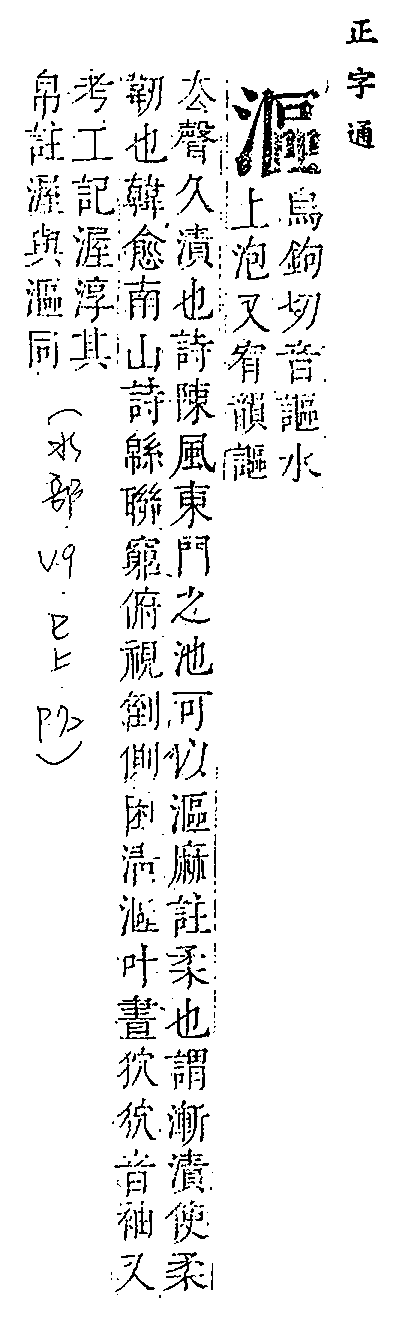 正字通
漚
烏鉤切音謳水
上泡又宥韻謳
去聲久漬也詩陳風東門之池可以漚麻註柔也謂漸漬使柔
韌也韓愈南山詩緜聯窮俯視倒側困清漚叶晝狖狖音袖又
考工記渥淳其
帛註渥與漚同
(水部.V.9.巳上.P.72)